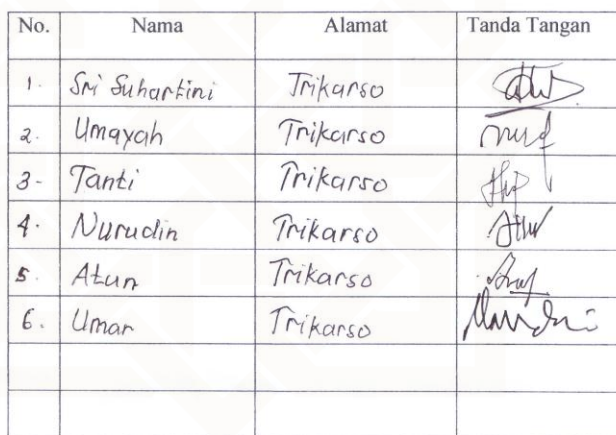 No. Nama Alamat Tanda Tangan
1. Sri Suhartini Trikarso
2. Umayah Trikarso
3- Tanti Trikarso
4. Nurudin Trikarso
5. Atun Trikarso
6. Umar Trikarso